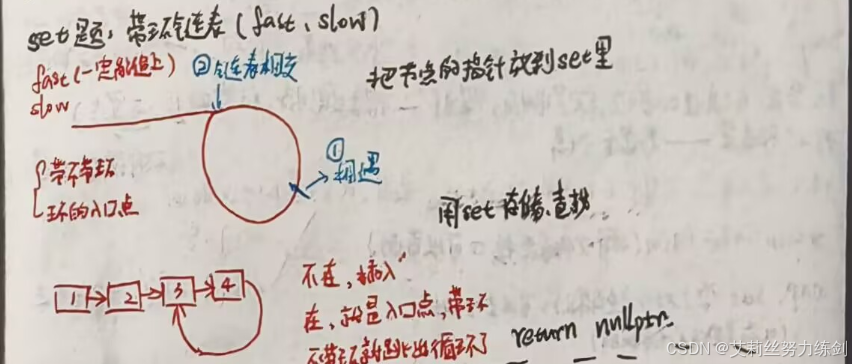 set题：带环链表（fast、slow）
fast（一定能追上）
slow
②链表相交
把节点的指针放到set里
①
相遇
带不带环
环的入口点
用set存储、查找
1 2 3 4
不在，插入
在，就是入口点，带环
不带环就跳出循环了
return nullptr
CSDN @艾莉丝努力练剑